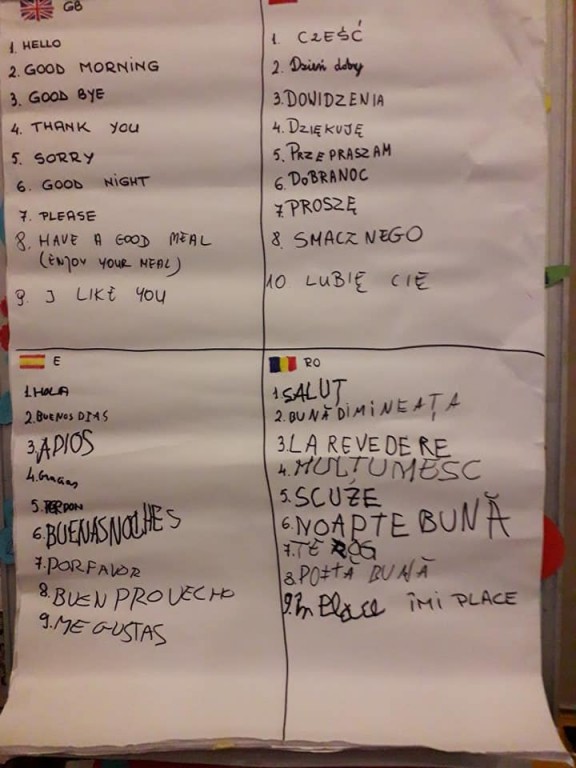 GB
1. HELLO
2. GOOD MORNING
3. GOOD BYE
4. THANK YOU
5. SORRY
6. GOOD NIGHT
7. PLEASE
8. HAVE A GOOD MEAL
(ENJOY YOUR MEAL)
9. I LIKE YOU
1. CZEŚĆ
2. Dzień doby
3. DOWIDZENIA
4. DZIĘKUJĘ
5. PRZEPRASZAM
6. DOBRANOC
7 PROSZĘ
8. SMACZNEGO
10 LUBIĘ CIĘ
E
1. HOLA
2. BUENOS DIAS
3. ADIOS
4. Gracias
5. PERDON
6. BUENAS NOCHES
7. POR FAVOR
8. BUEN PROVECHO
9. ME GUSTAS
RO
1 SALUT
2. BUNĂ DIMINEAȚA
3. LA REVEDERE
4. MULȚUMESC
5. SCUZE
6. NOAPTE BUNĂ
7. TE ROG
8 POFTĂ BUNĂ
9. ÎMI PLACE